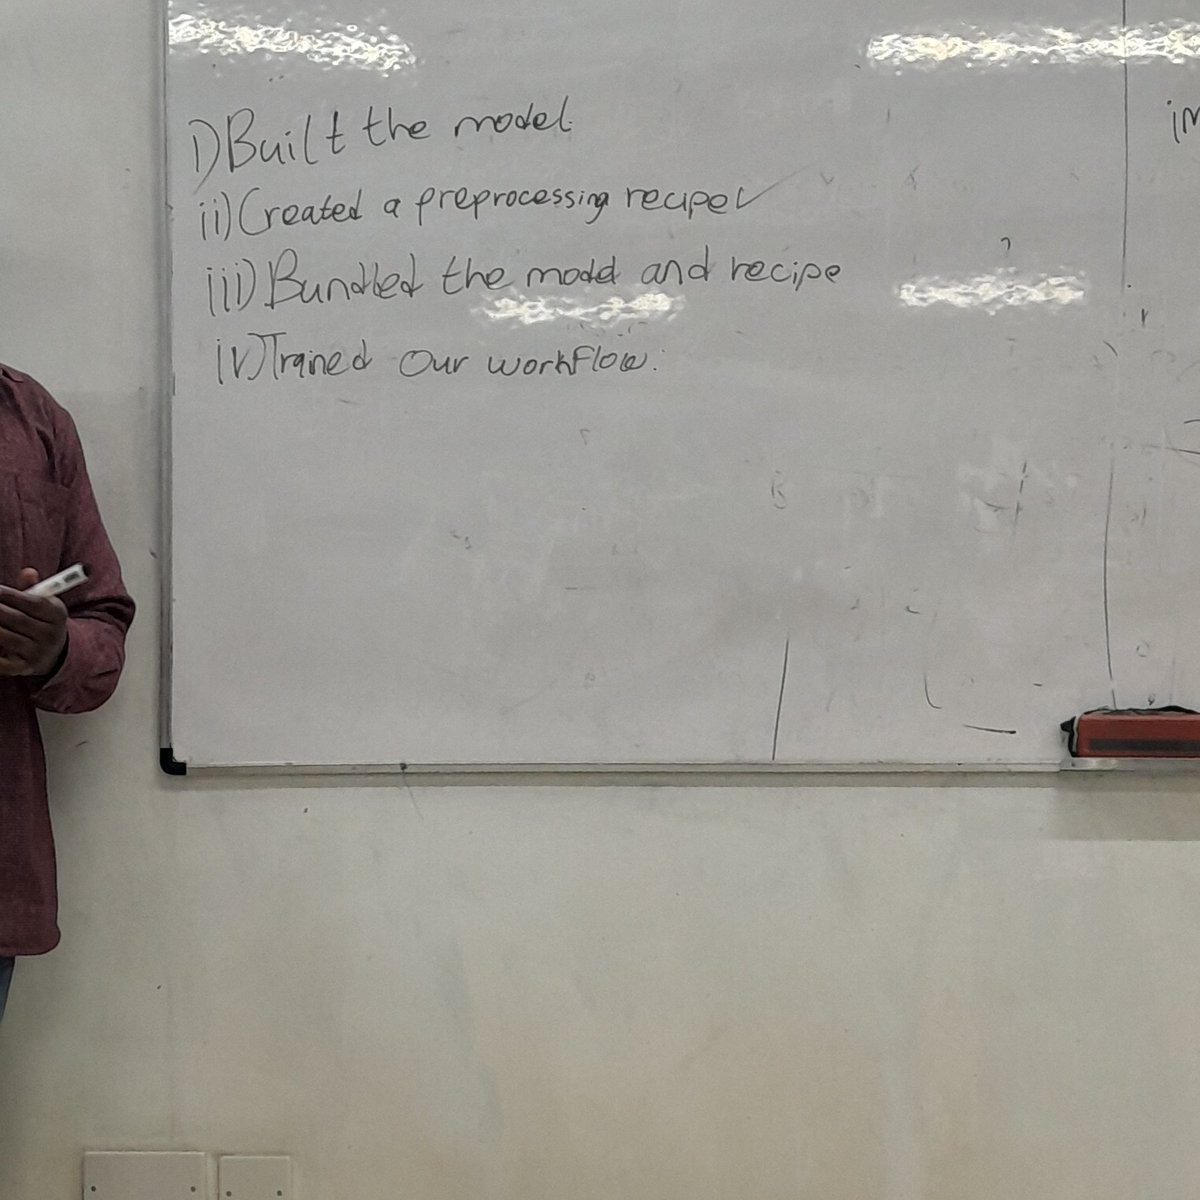 i) Built the model.
ii) Created a preprocessing recipe✓
iii) Bundled the model and recipe
iv) Trained our workflow.